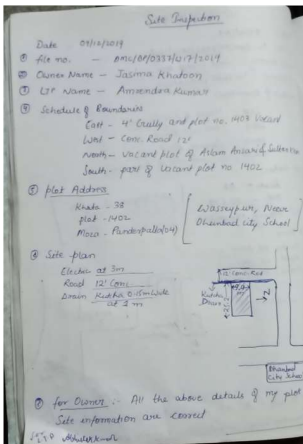 Site Inspection
Date: 09/12/2019
① file no. - DMC/BP/0337/W17/2019
② Owner Name - Jasima Khatoon
③ LTP Name - Amrendra Kumar
④ Schedule of Boundaries
East - 4' Gully and plot no. 1403 Vacant
West - Conc. Road 12'
North - Vacant plot of Aslam Ansari &
South - part of Vacant plot no. 1402
⑤ plot Address
Khata - 38
plot - 1402
Moza - Pandarpalla (04)
[Wasseypur, Near
Dhanbad City School]
⑥ Site plan
Electric at 3m
Road 12' Conc.
Drain Kutcha 0.15m wide
at 1m
12' Conc. Road
Kutcha
Drain
N
Dhanbad
City School
⑦ for Owner :- All the above details of my plot
Site information are correct